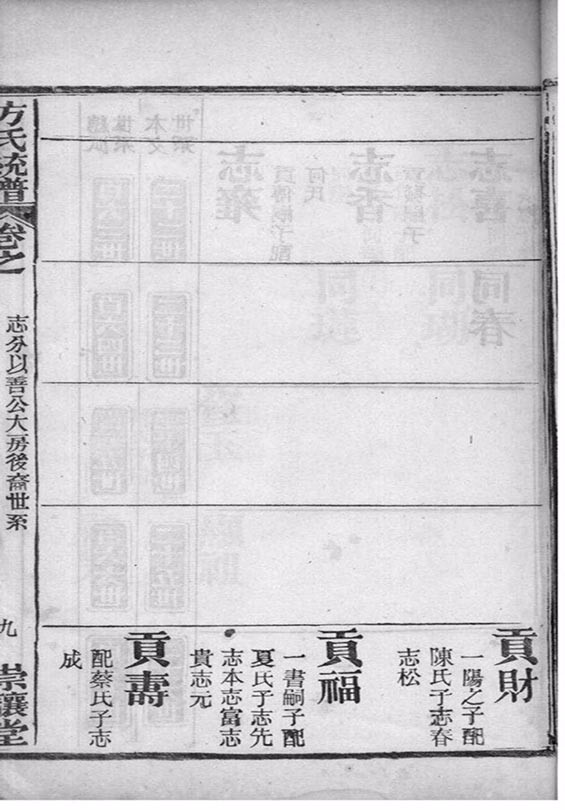 貢財
一陽之子配
陳氏子志春
志松
貢福
一書嗣子配
夏氏子志先
志本志富志
貴志元
貢壽
配蔡氏子志
成
方氏統譜
卷之
志分以善公大房後裔世系
九
崇讓堂